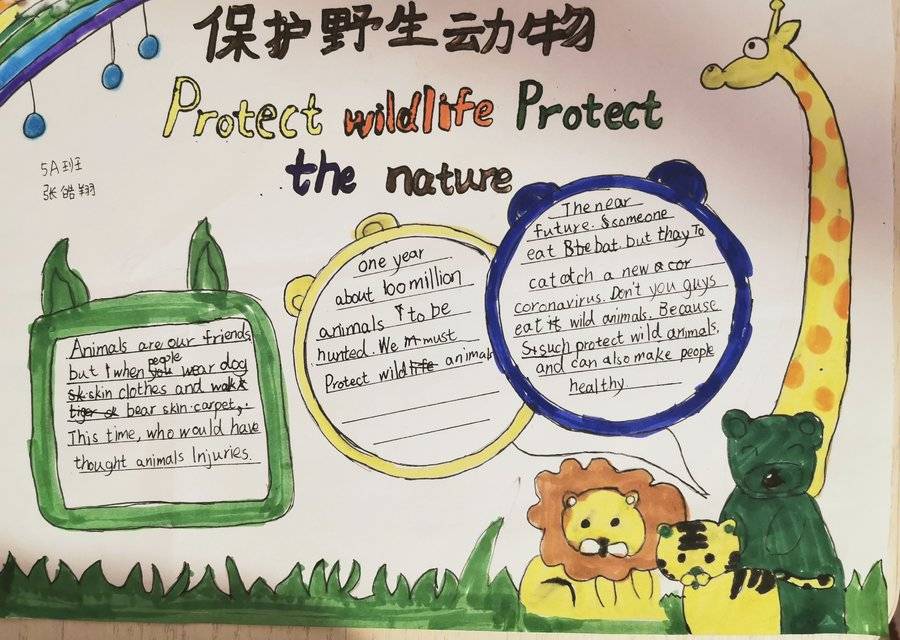 保护野生动物
Protect wildlife Protect
the nature
5A班
张皓翔
Animals are our friends
but when people wear dog
skin clothes and
bear skin carpet,
This time, who would have
thought animals Injuries.
one year
about 100 million
animals to be
hunted. We must
Protect wild animals
The near
future. someone
eat bat but thay To
catch a new cor
coronavirus. Don't you guys
eat wild animals. Because
such protect wild animals.
and can also make people
healthy